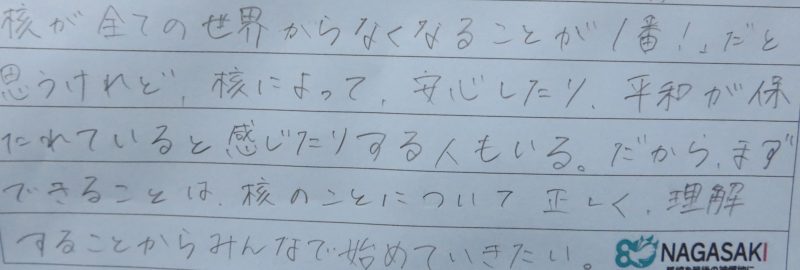 核が全ての世界からなくなることが1番!」だと
思うけれど、核によって、安心したり、平和が保
たれていると感じたりする人もいる。だから、まず
できることは、核のことについて正しく、理解
することからみんなで始めていきたい。
80 NAGASAKI
長崎を最後の被爆地に